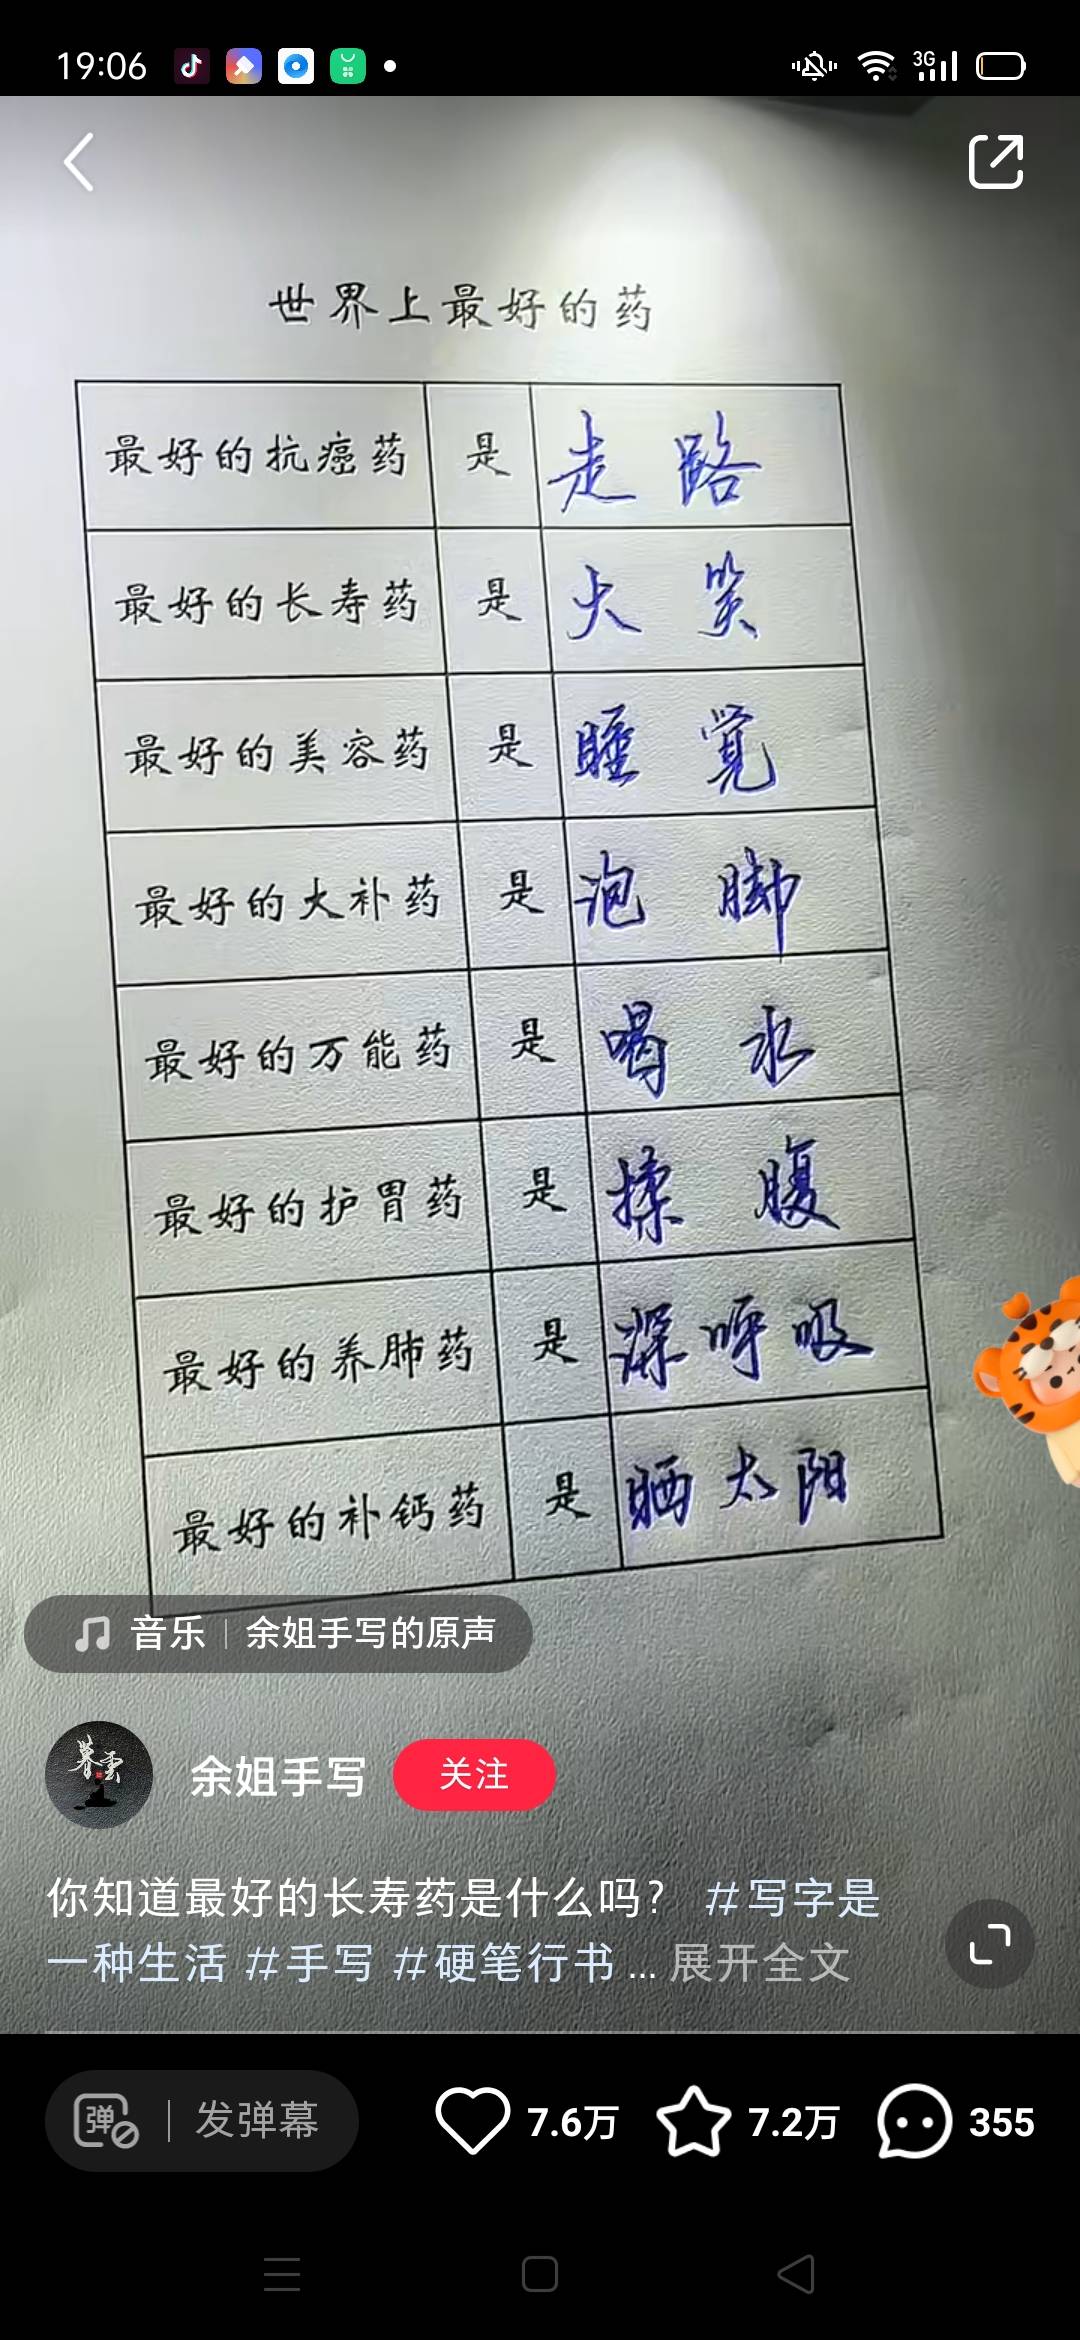 19:06
3G
世界上最好的药
最好的抗癌药 是 走路
最好的长寿药 是 大笑
最好的美容药 是 睡觉
最好的大补药 是 泡脚
最好的万能药 是 喝水
最好的护胃药 是 揉腹
最好的养肺药 是 深呼吸
最好的补钙药 是 晒太阳
音乐 | 余姐手写的原声
余姐手写 关注
你知道最好的长寿药是什么吗? #写字是
一种生活 #手写 #硬笔行书 ... 展开全文
弹 | 发弹幕 7.6万 7.2万 355